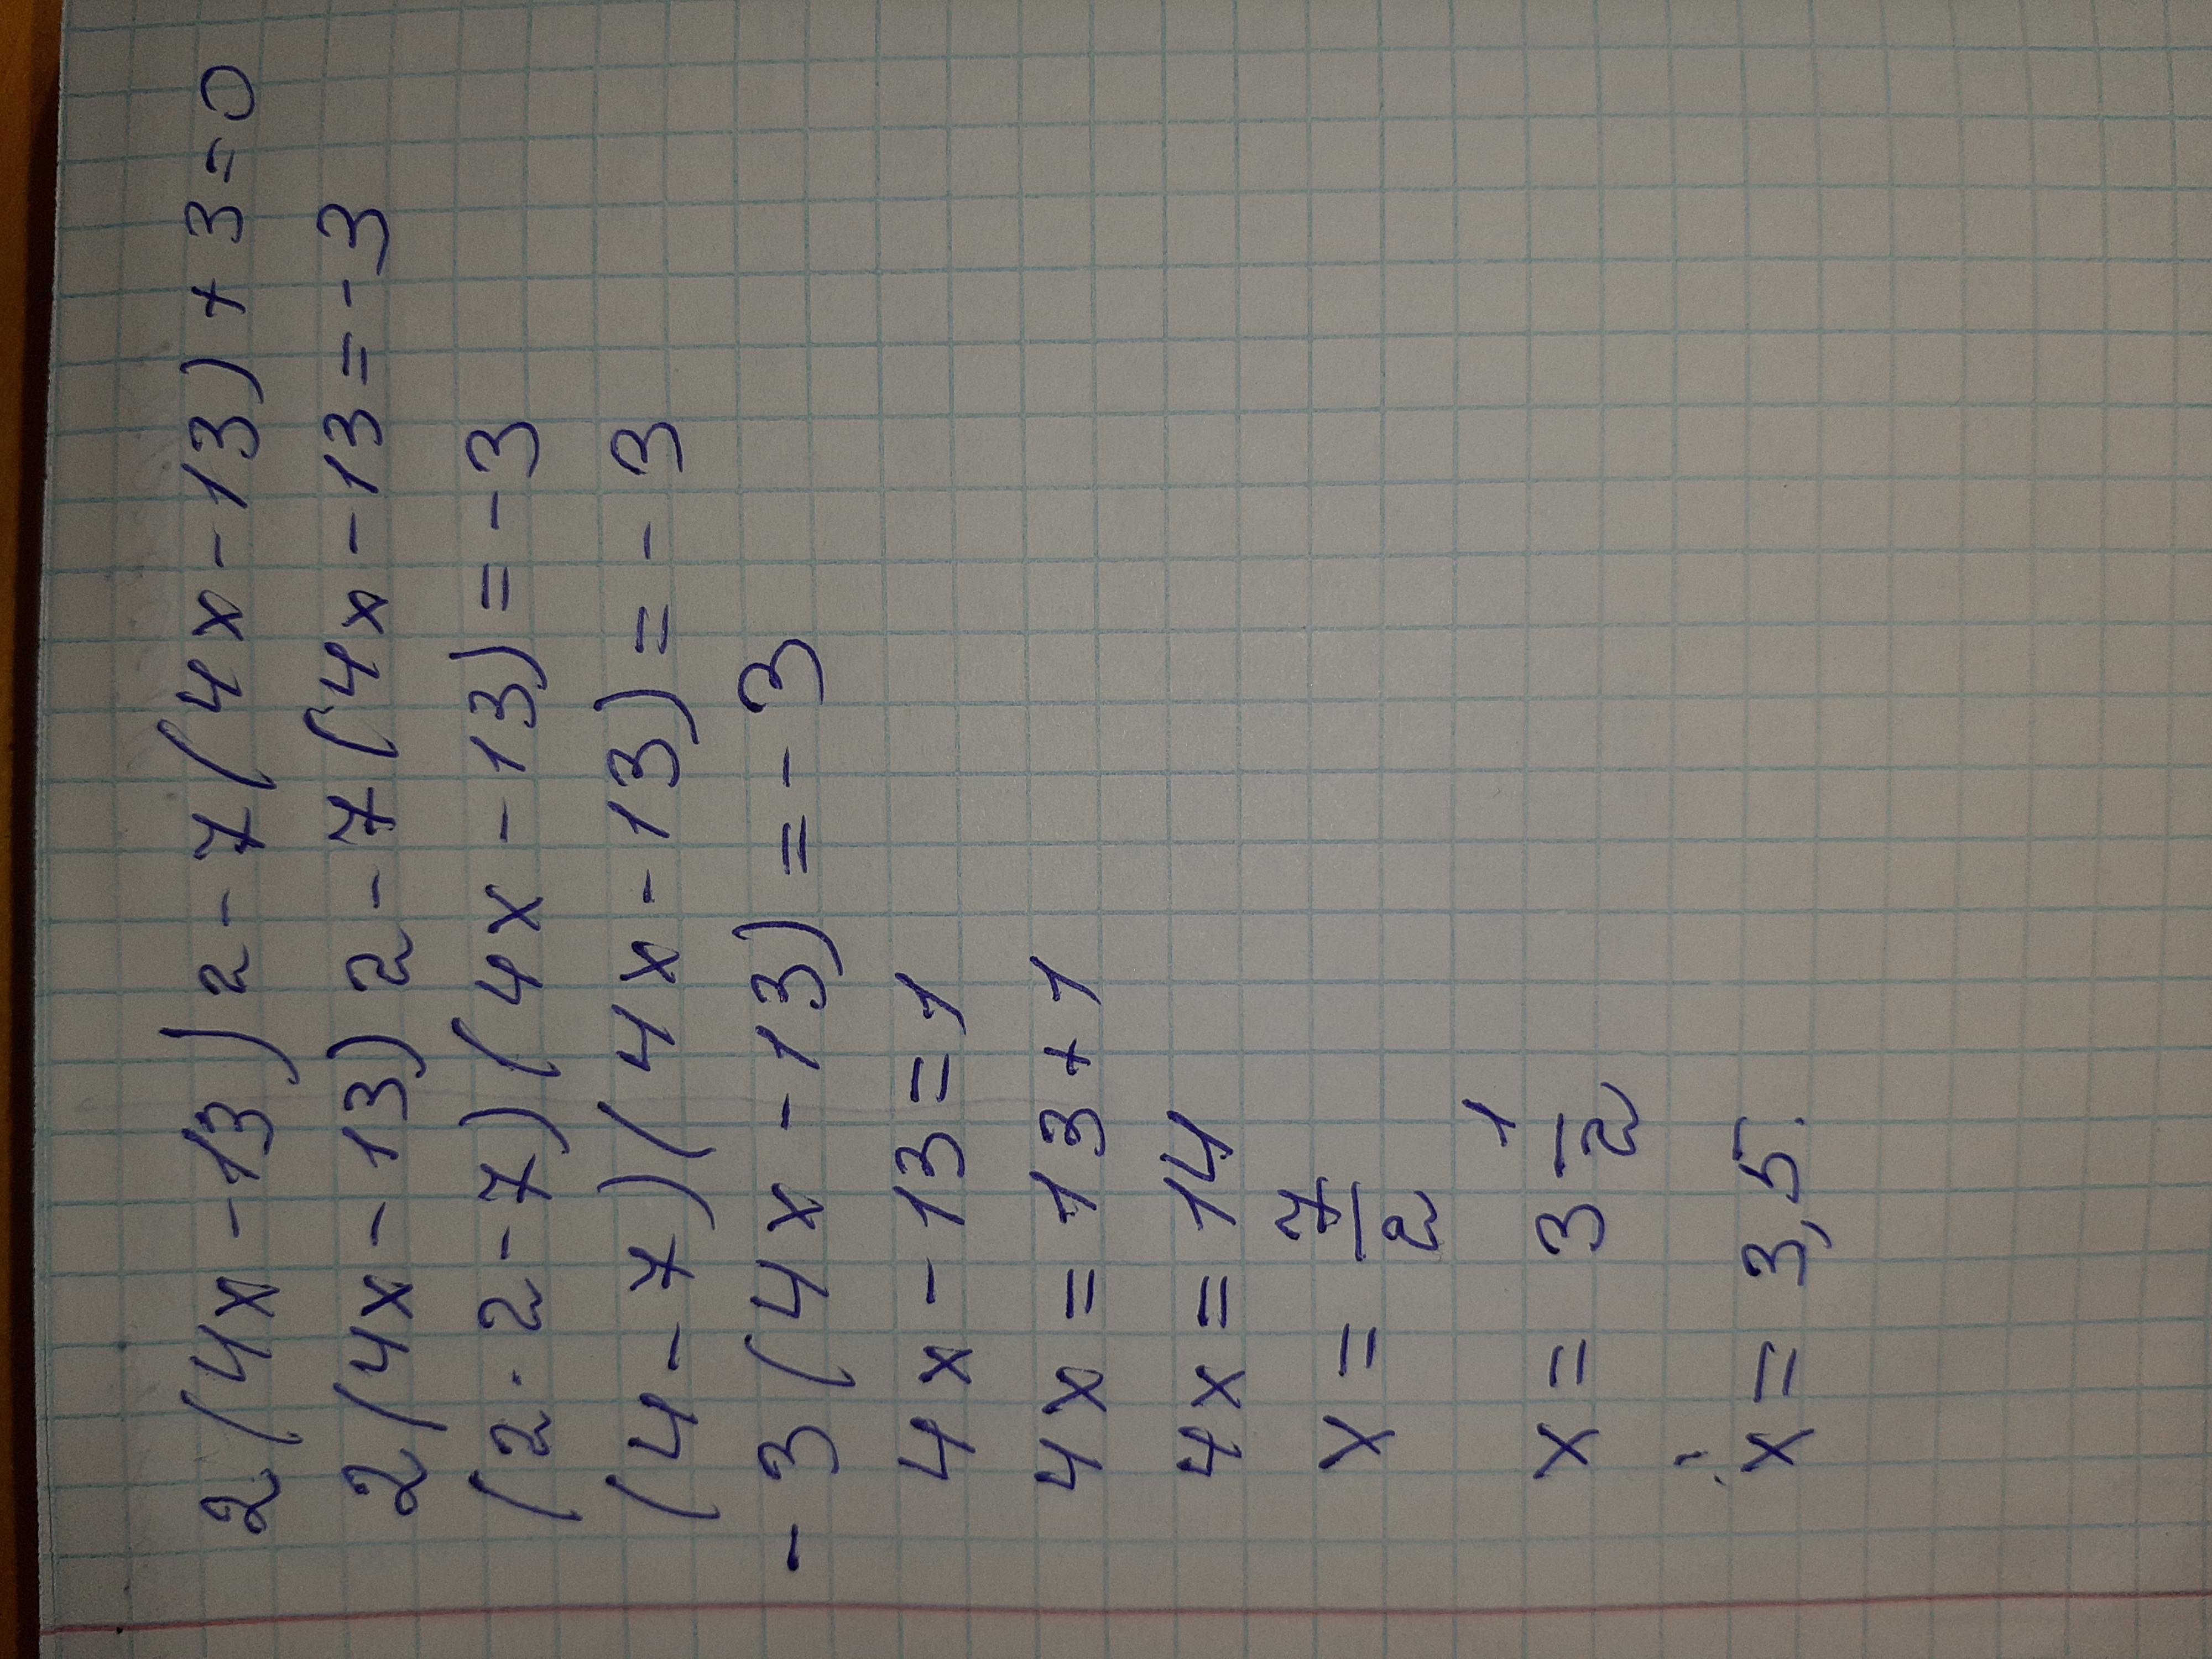 2(4x-13)2-7(4x-13)+3=0
2(4x-13)2-7(4x-13=-3
(2·2-7)(4x-13)=-3
(4-7)(4x-13)=-3
-3(4x-13)=-3
4x-13=1
4x=13+1
4x=14
x=7/2
x=3 1/2
x=3,5.